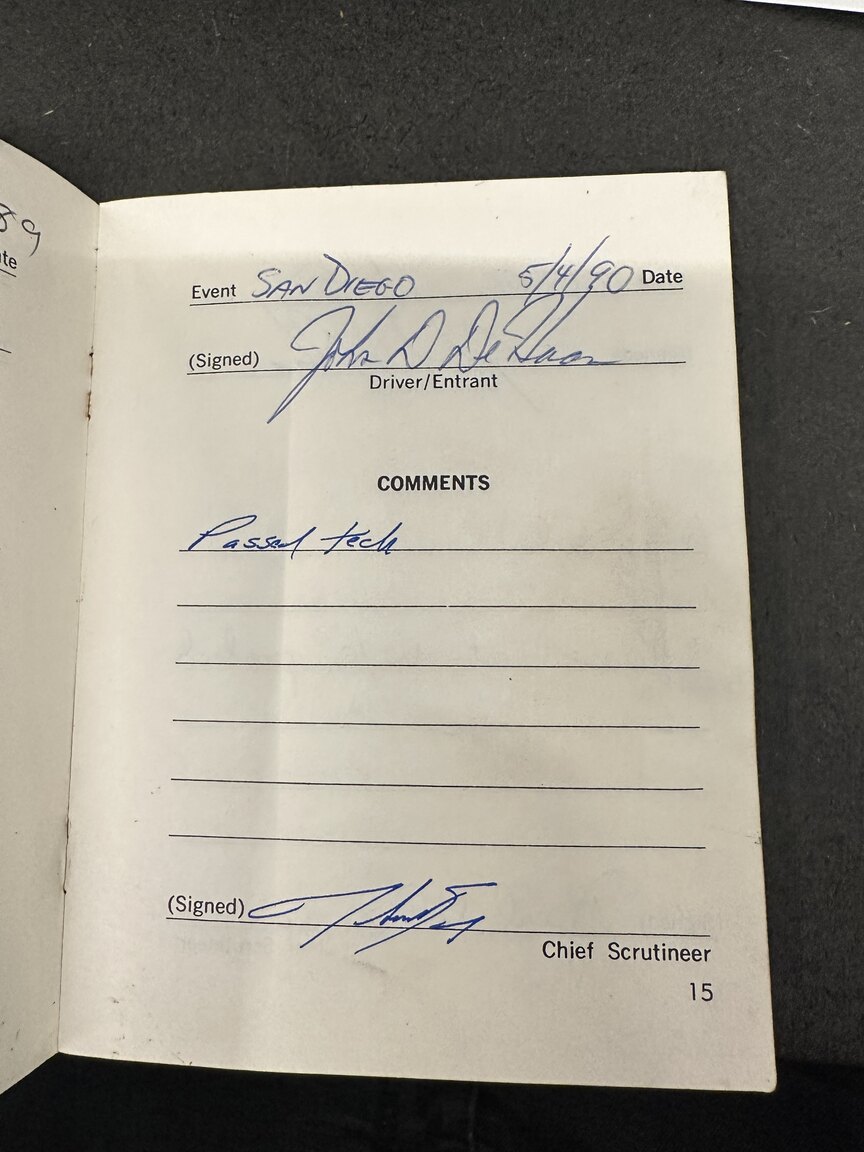 89
te
Event SAN DIEGO 5/4/90 Date
(Signed) John D DeHaan
Driver/Entrant
COMMENTS
Passed tech
(Signed)
Chief Scrutineer
15